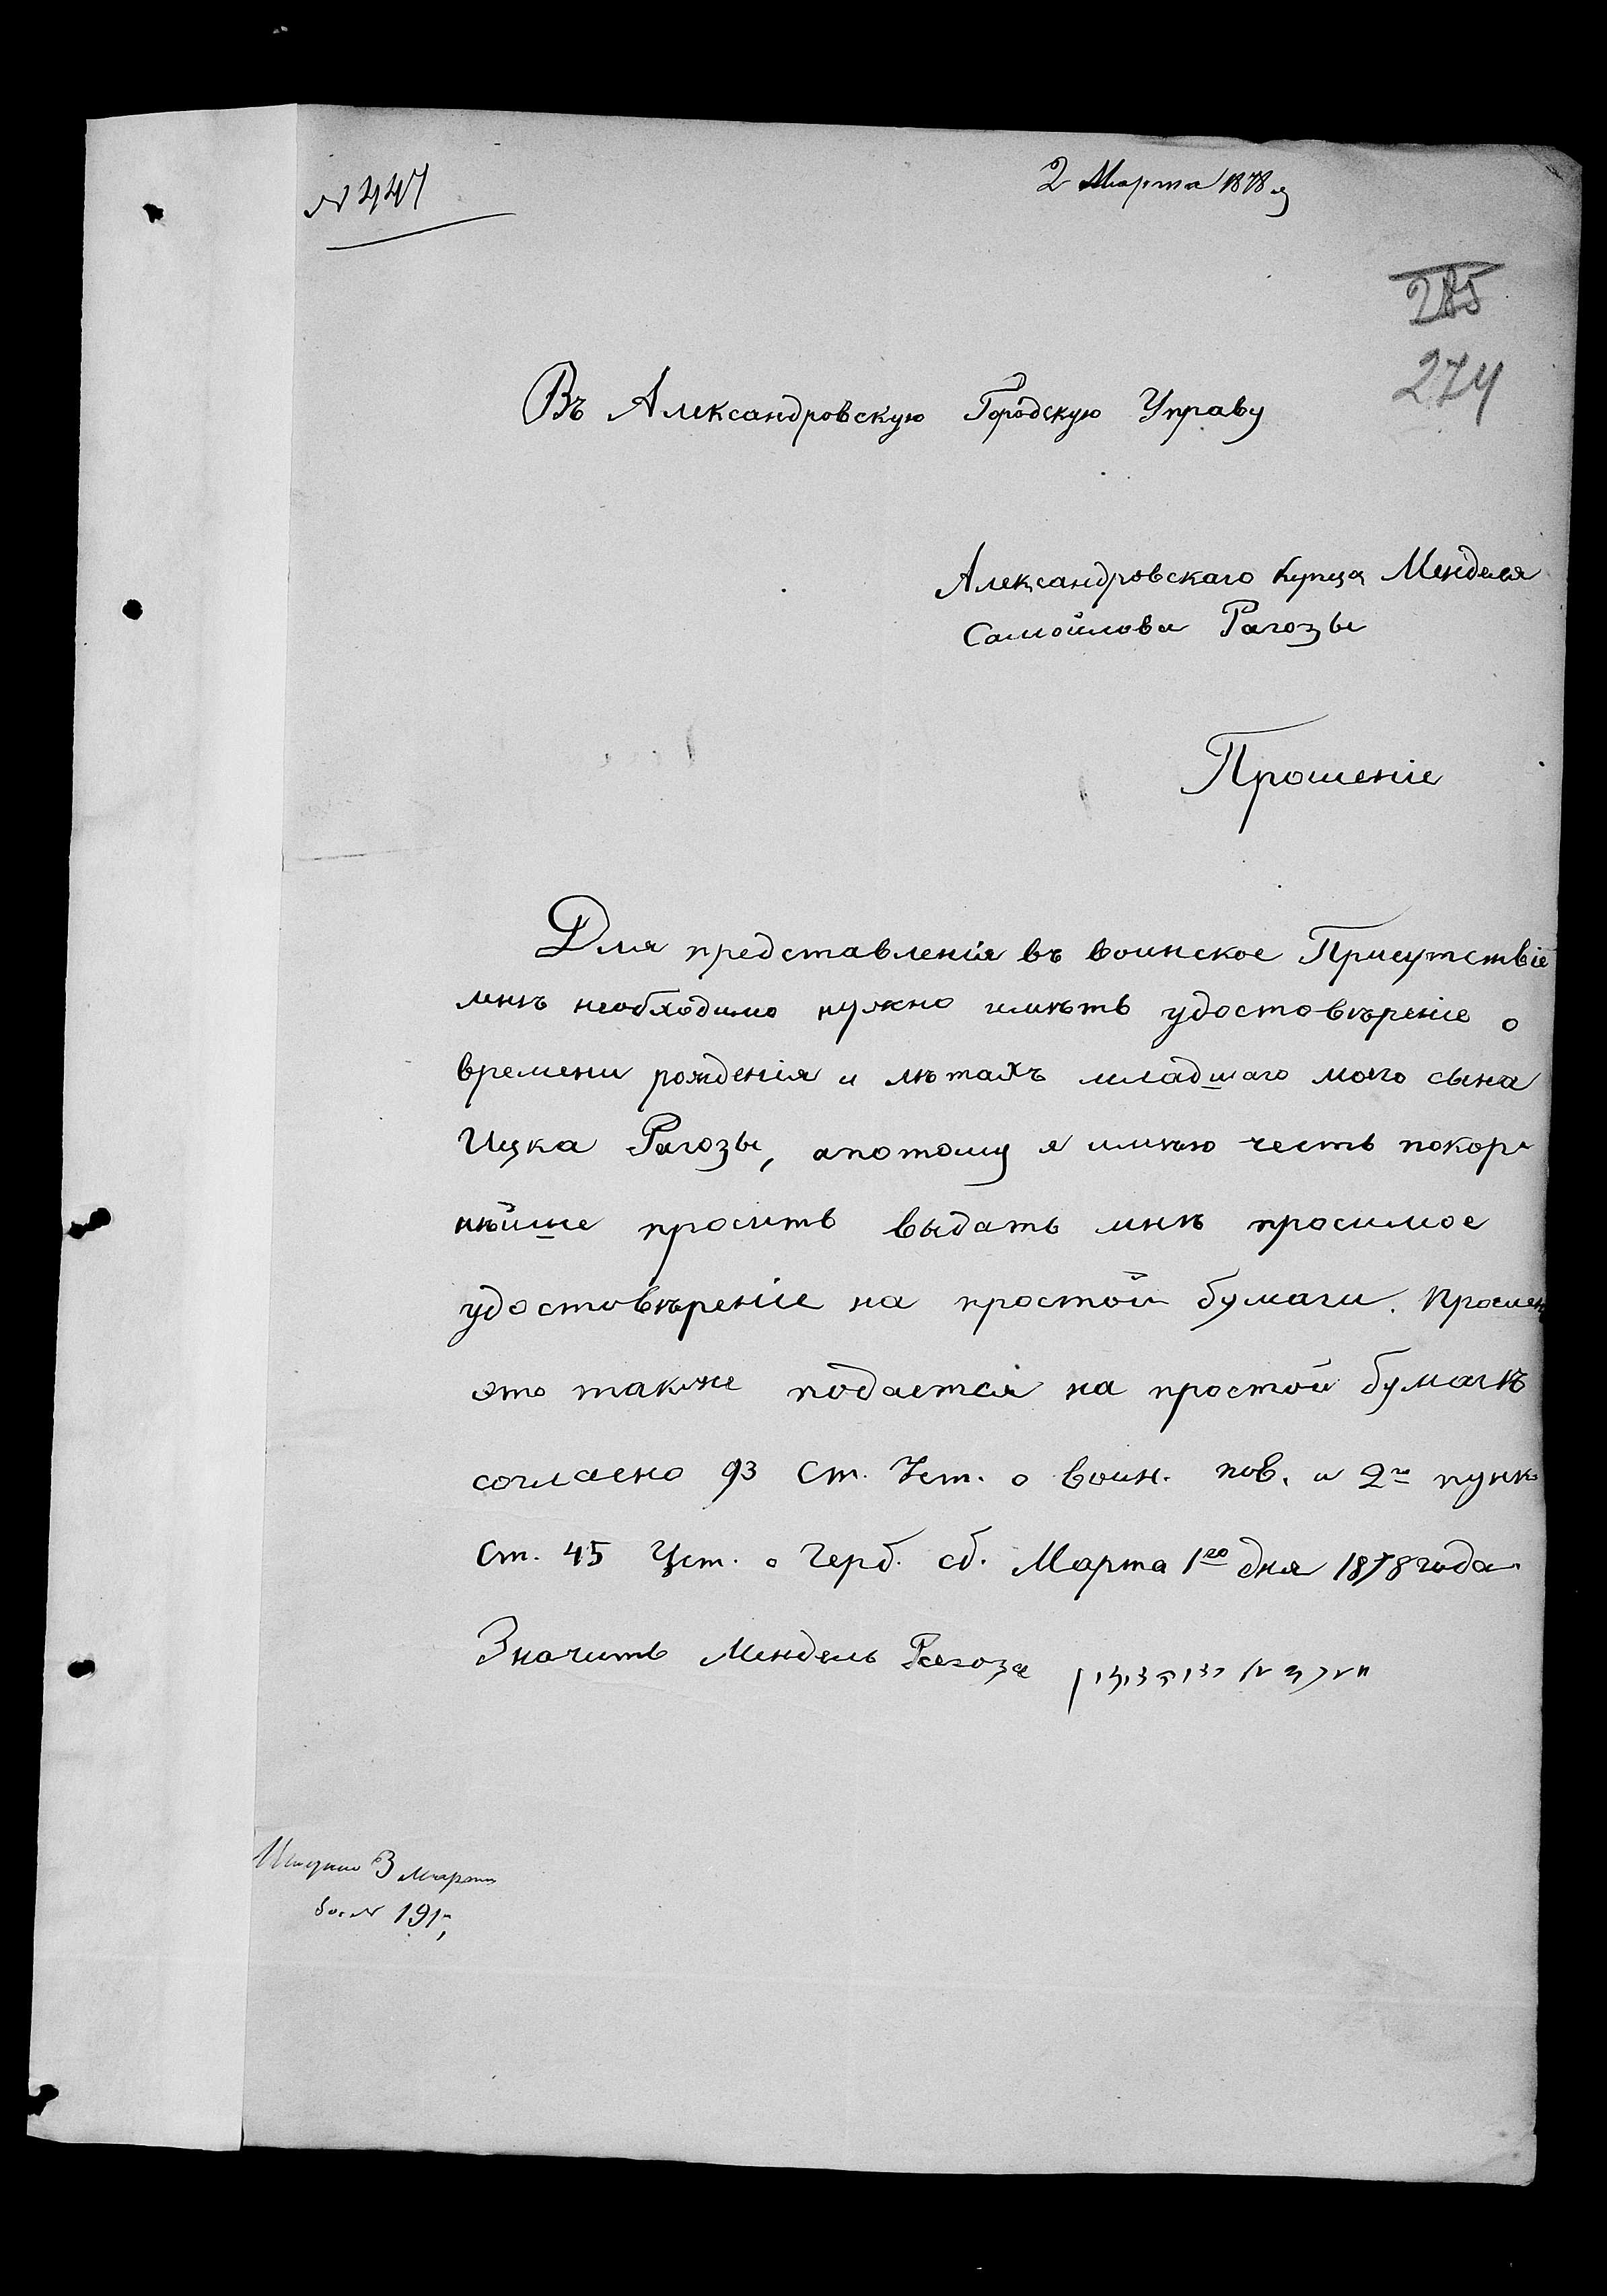 № 447
2 Марта 1878 г
285
274
Въ Александровскую Городскую Управу
Александровскаго купца Менделя
Самойлова Рагозы
Прошеніе
Для представленія въ воинское Присутствіе
мнѣ необходимо нужно имѣть удостовѣреніе о
времени рожденія и лѣтахъ младшаго моего сына
Ицка Рагозы, а потому я имѣю честь покор-
нѣйше просить выдать мнѣ просимое
удостовѣреніе на простой бумаги. Прошен
это также подается на простой бумагѣ
согласно 93 Ст. Уст. о воин. пов. и 2го пунк
Ст. 45 Уст. о Герб. сб. Марта 1го дня 1878 года
Значитъ Мендель Рагоза
3 Марта
за № 191